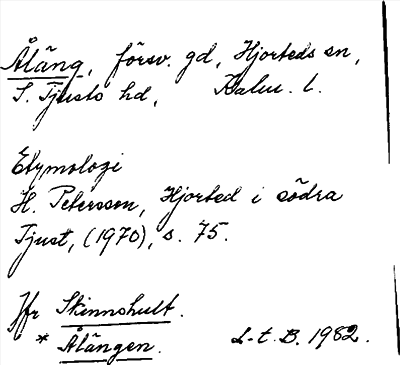 Åläng, försv. gd, Hjorteds sn,
S. Tjusts hd, Kalm. l.
Etymologi
H. Petersson, Hjorted i södra
Tjust, (1970), s. 75.
Jfr Skinnshult.
* Ålängen. L-t. B. 1982.